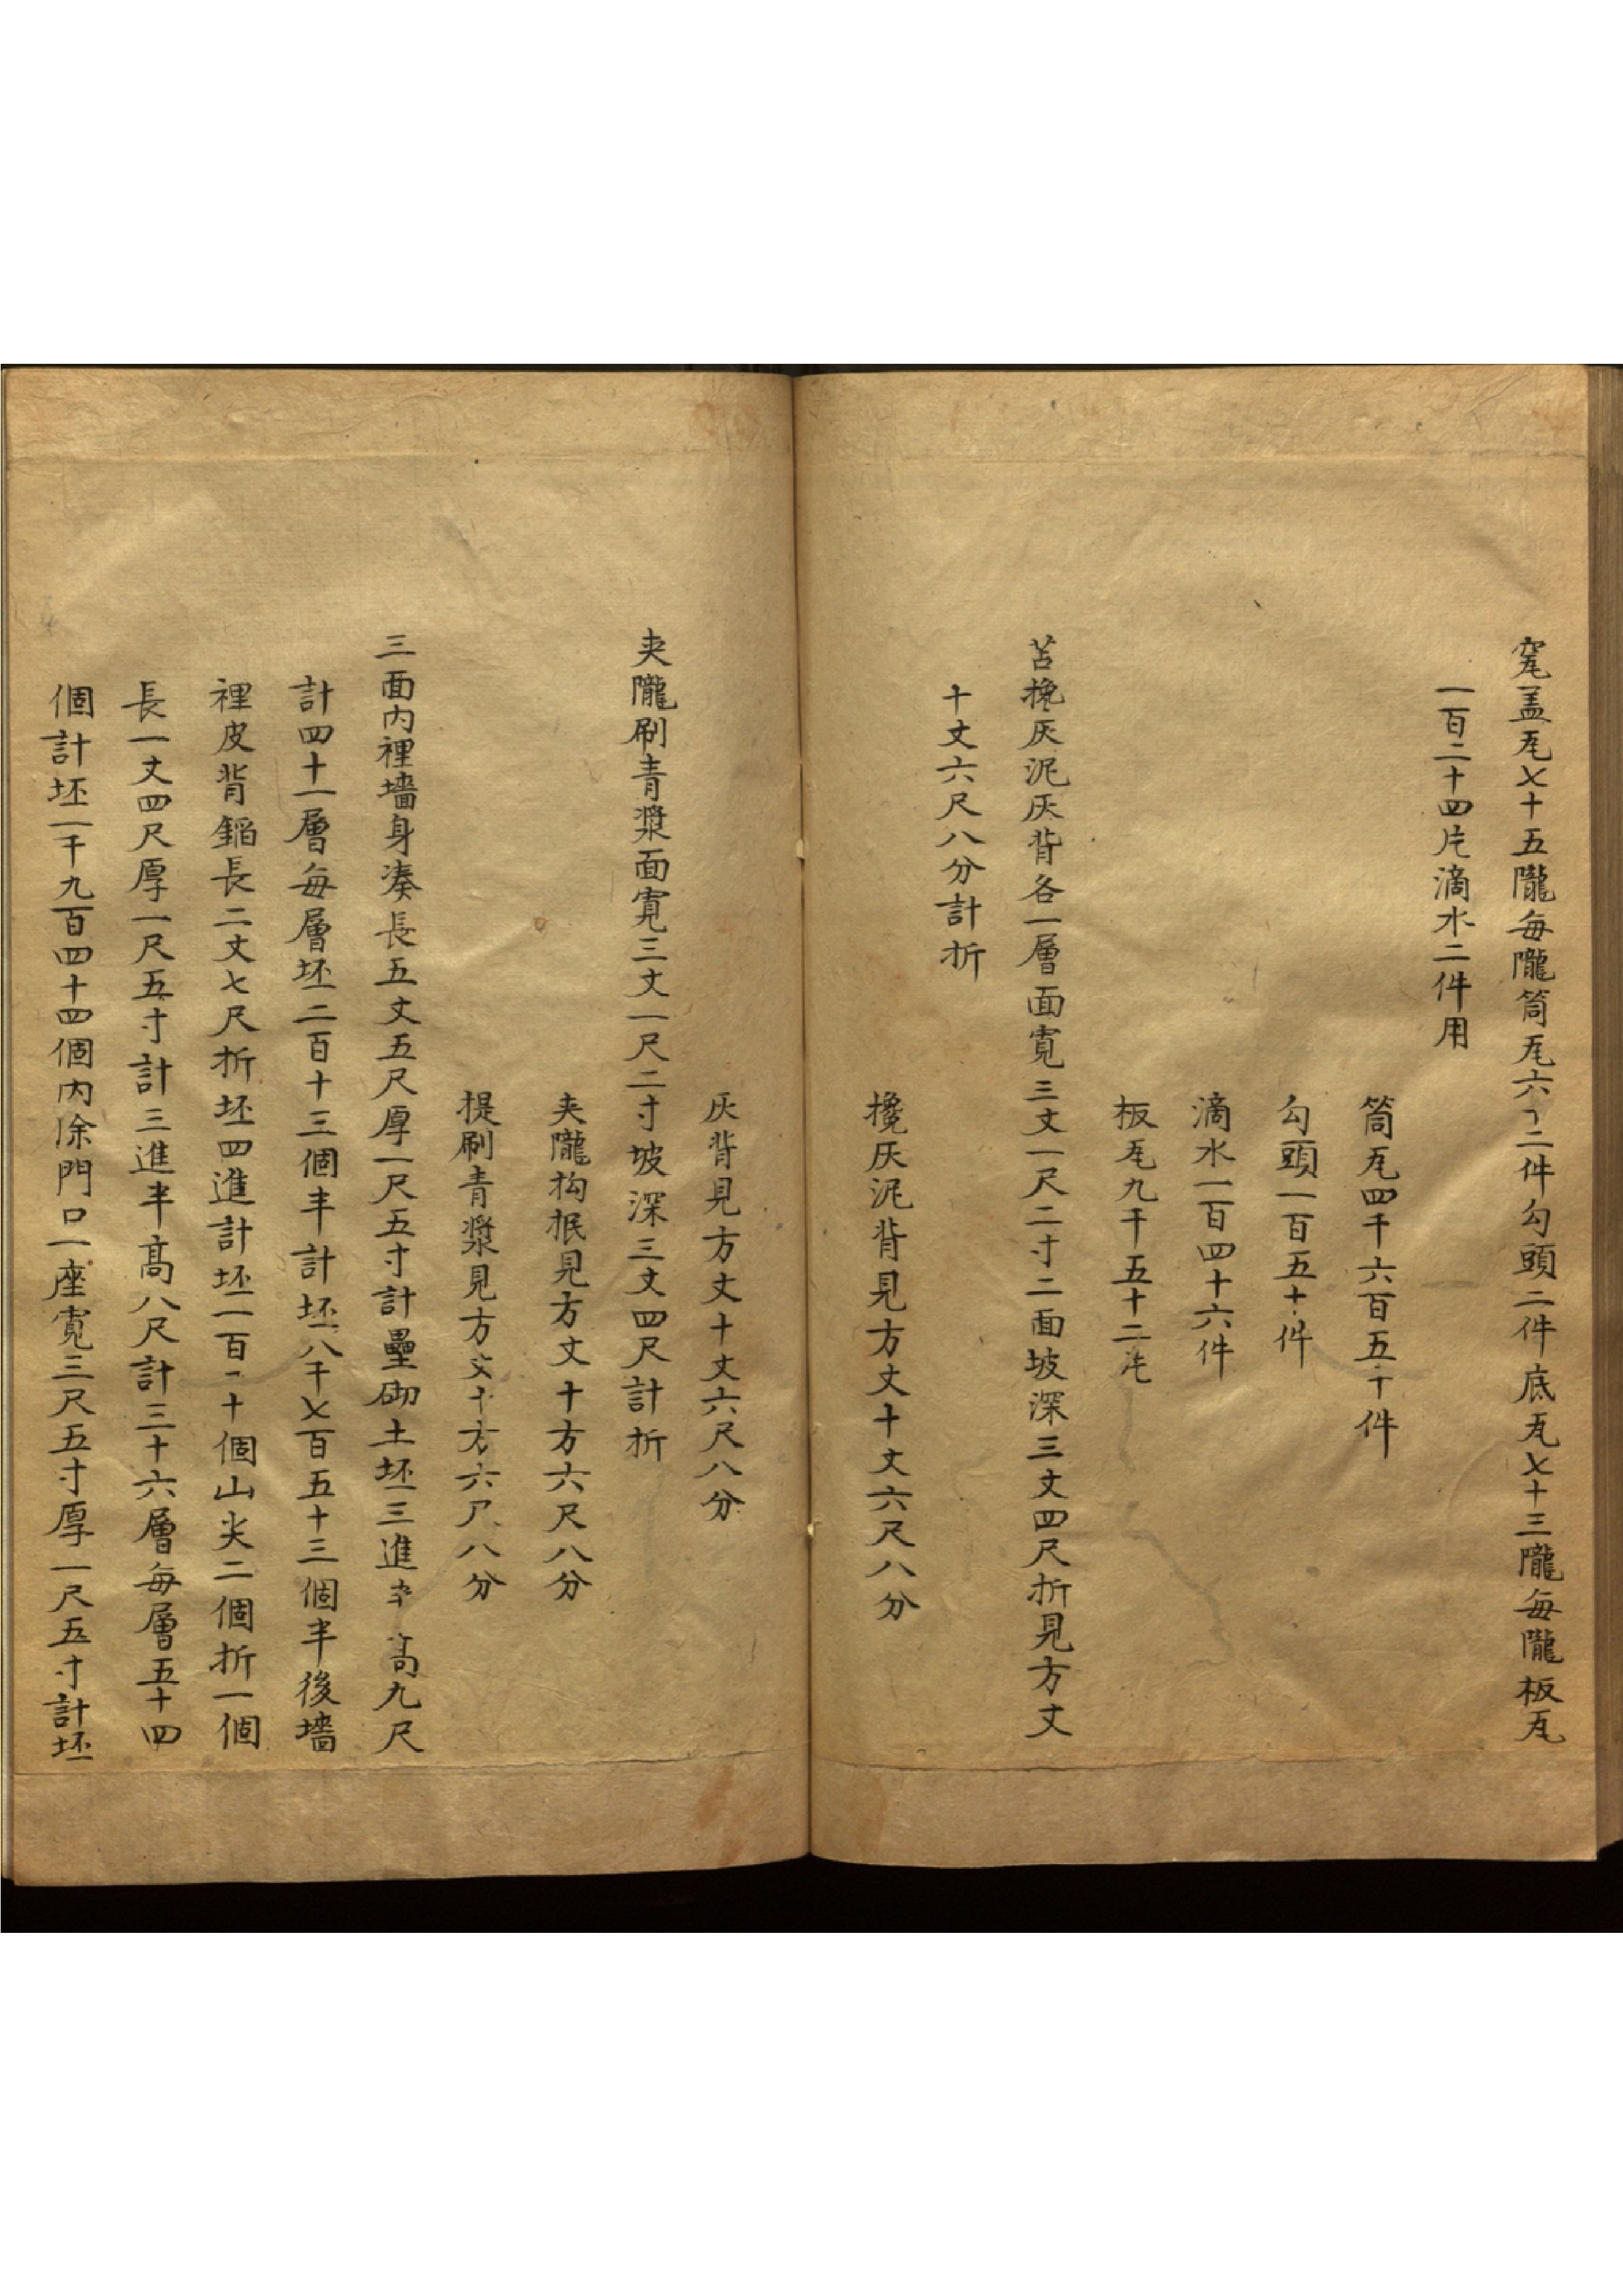 窀盖瓦七十五隴每隴筒瓦六十二件勾頭二件底瓦七十三隴每隴板瓦
一百二十四片滴水二件用
筒瓦四千六百五十件
勾頭一百五十件
滴水一百四十六件
板瓦九千五十二片
苫攙灰泥灰背各一層面寬三丈一尺二寸二面坡深三丈四尺折見方丈
十丈六尺八分計折
攙灰泥背見方丈十丈六尺八分
灰背見方丈十丈六尺八分
夹隴刷青漿面寬三丈一尺二寸坡深三丈四尺計折
夹隴构抿見方丈十方六尺八分
提刷青漿見方丈十方六尺八分
三面内裡墻身凑長五丈五尺厚一尺五寸計壘砌土坯三進半高九尺
計四十一層每層坯二百十三個半計坯八千七百五十三個半後墻
裡皮背餡長二丈七尺折坯四進計坯一百一十個山尖二個折一個
長一丈四尺厚一尺五寸計三進半高八尺計三十六層每層五十四
個計坯一千九百四十四個内除門口一座寬三尺五寸厚一尺五寸計坯